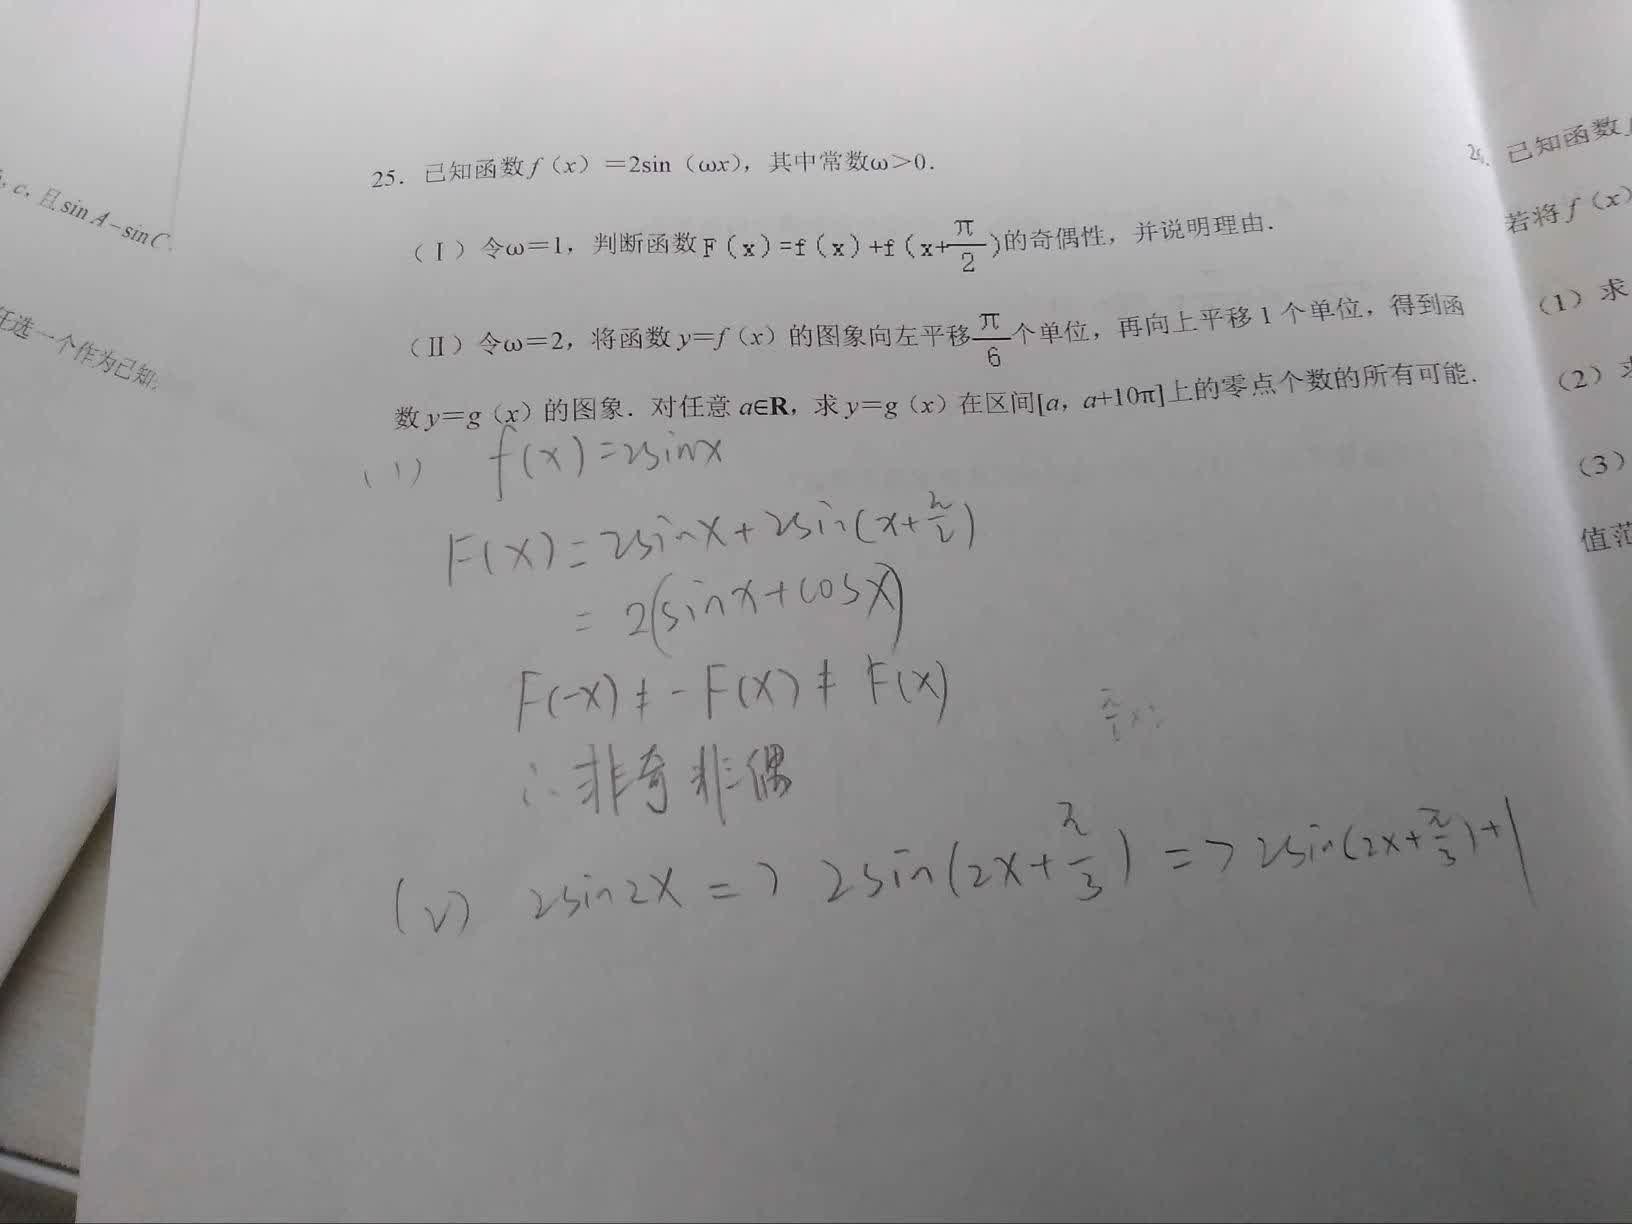 c，且sin A－sin C
任选一个作为已知
25．已知函数 f（x）＝2sin（ωx），其中常数ω＞0．
（Ⅰ）令ω＝1，判断函数F(x)=f(x)+f(x+π/2)的奇偶性，并说明理由．
（Ⅱ）令ω＝2，将函数 y＝f（x）的图象向左平移π/6个单位，再向上平移 1 个单位，得到函
数 y＝g（x）的图象．对任意 a∈R，求 y＝g（x）在区间[a，a+10π]上的零点个数的所有可能．
(1) f(x)=2sinx
F(x)=2sinx+2sin(x+π/2)
=2(sinx+cosx)
F(-x)≠-F(x)≠F(x)
∴非奇非偶
(2) 2sin2x => 2sin(2x+π/3) => 2sin(2x+π/3)+1
26. 已知函数
若将 f（x）
（1）求
（2）
（3）
值范